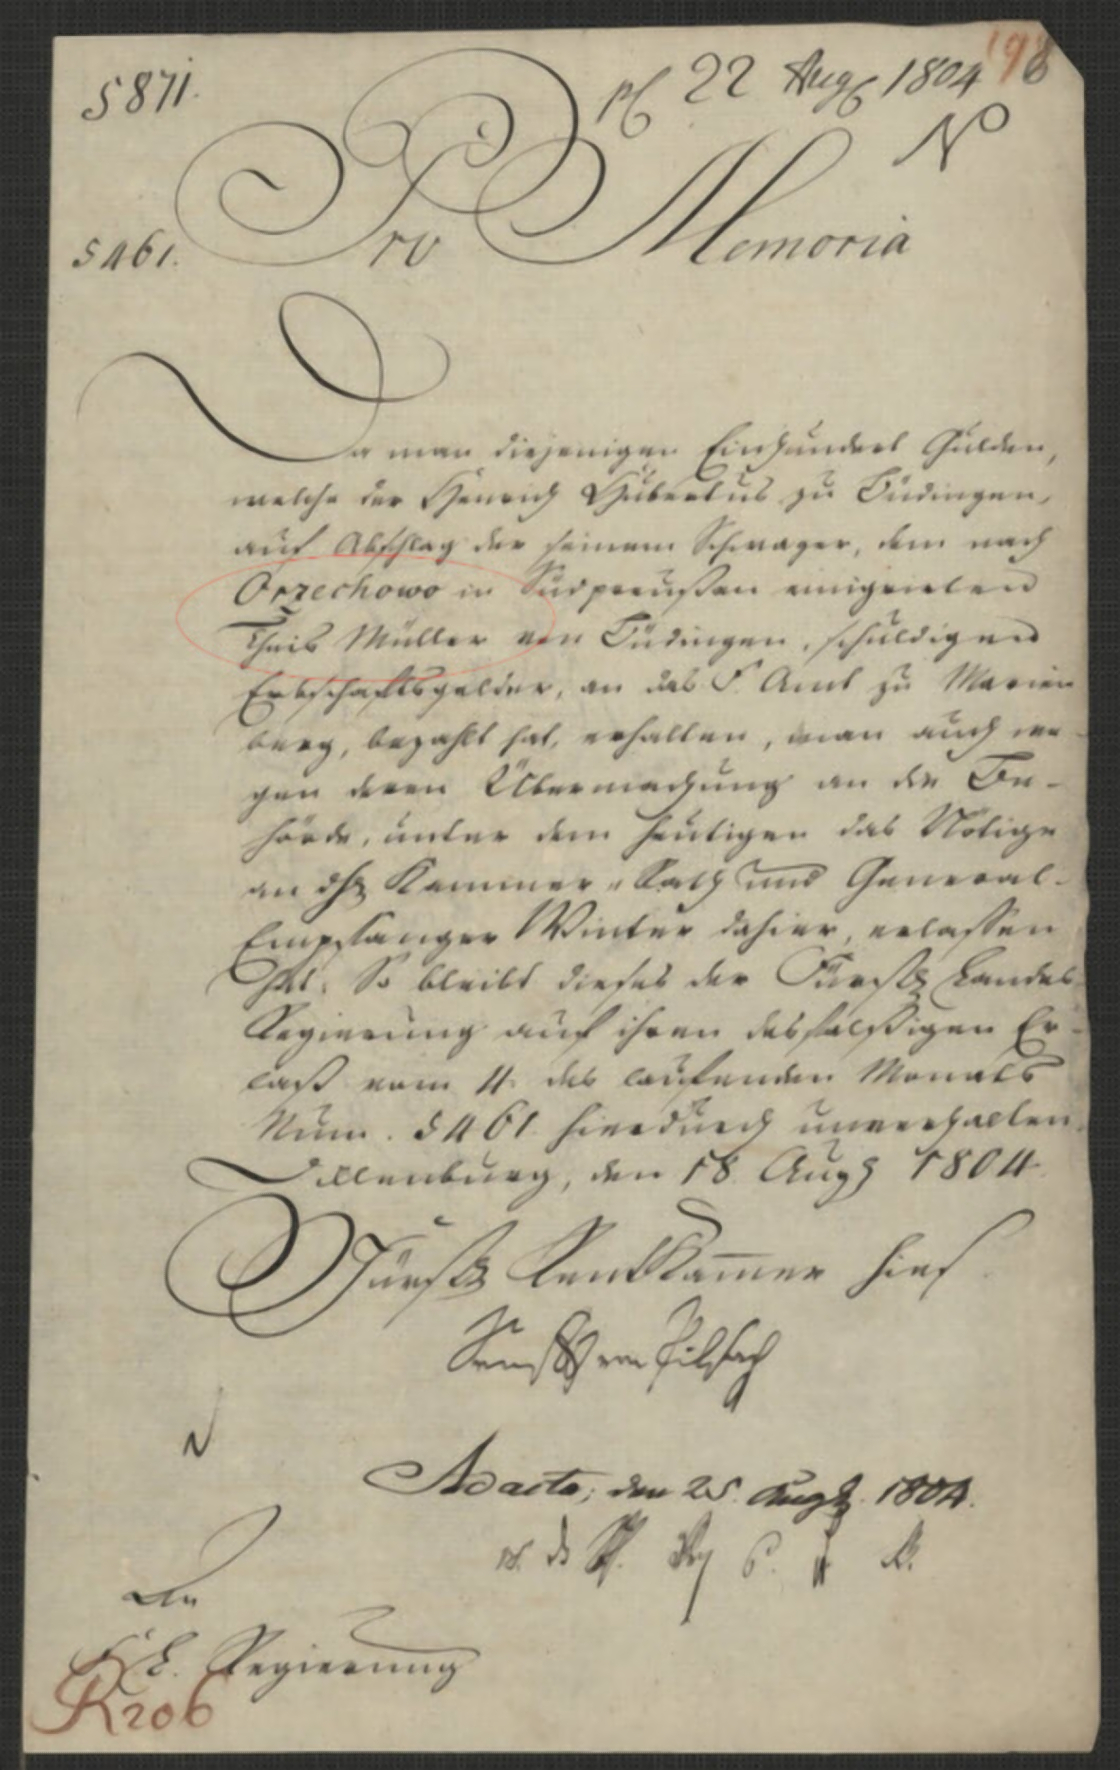 5871.
22 Aug 1804
198
N
Pro Memoria
5461.
Da man diejenigen Einhundert Gulden,
welche der Henrich Hubertus zu Büdingen,
auf Abschlag der seinem Schwager, dem nach
Orzechowo in Südpreußen emigrirten
Theis Müller von Büdingen, schuldigen
Erbschaftsgelder, an das F. Amt zu Marien
berg, bezahlt hat, erhalten, man auch we-
gen deren Übermachung an die Be-
hörde, unter dem heutigen das Nötige
an Kammer-Rath und General-
Empfanger Winter dahier, erlassen
hat: So bleibt dieses der Fürstl Landes
Regierung auf ihren desfalsigen Er-
laß vom 4. des laufenden Monats
Num. 5461. hierdurch unverhalten.
Dillenburg, den 18. Aug 1804.
Fürstl RentKam̄er hies.
von Pilsach
Ad acta, den 25. Augst. 1804.
An
F. L. Regierung
K206